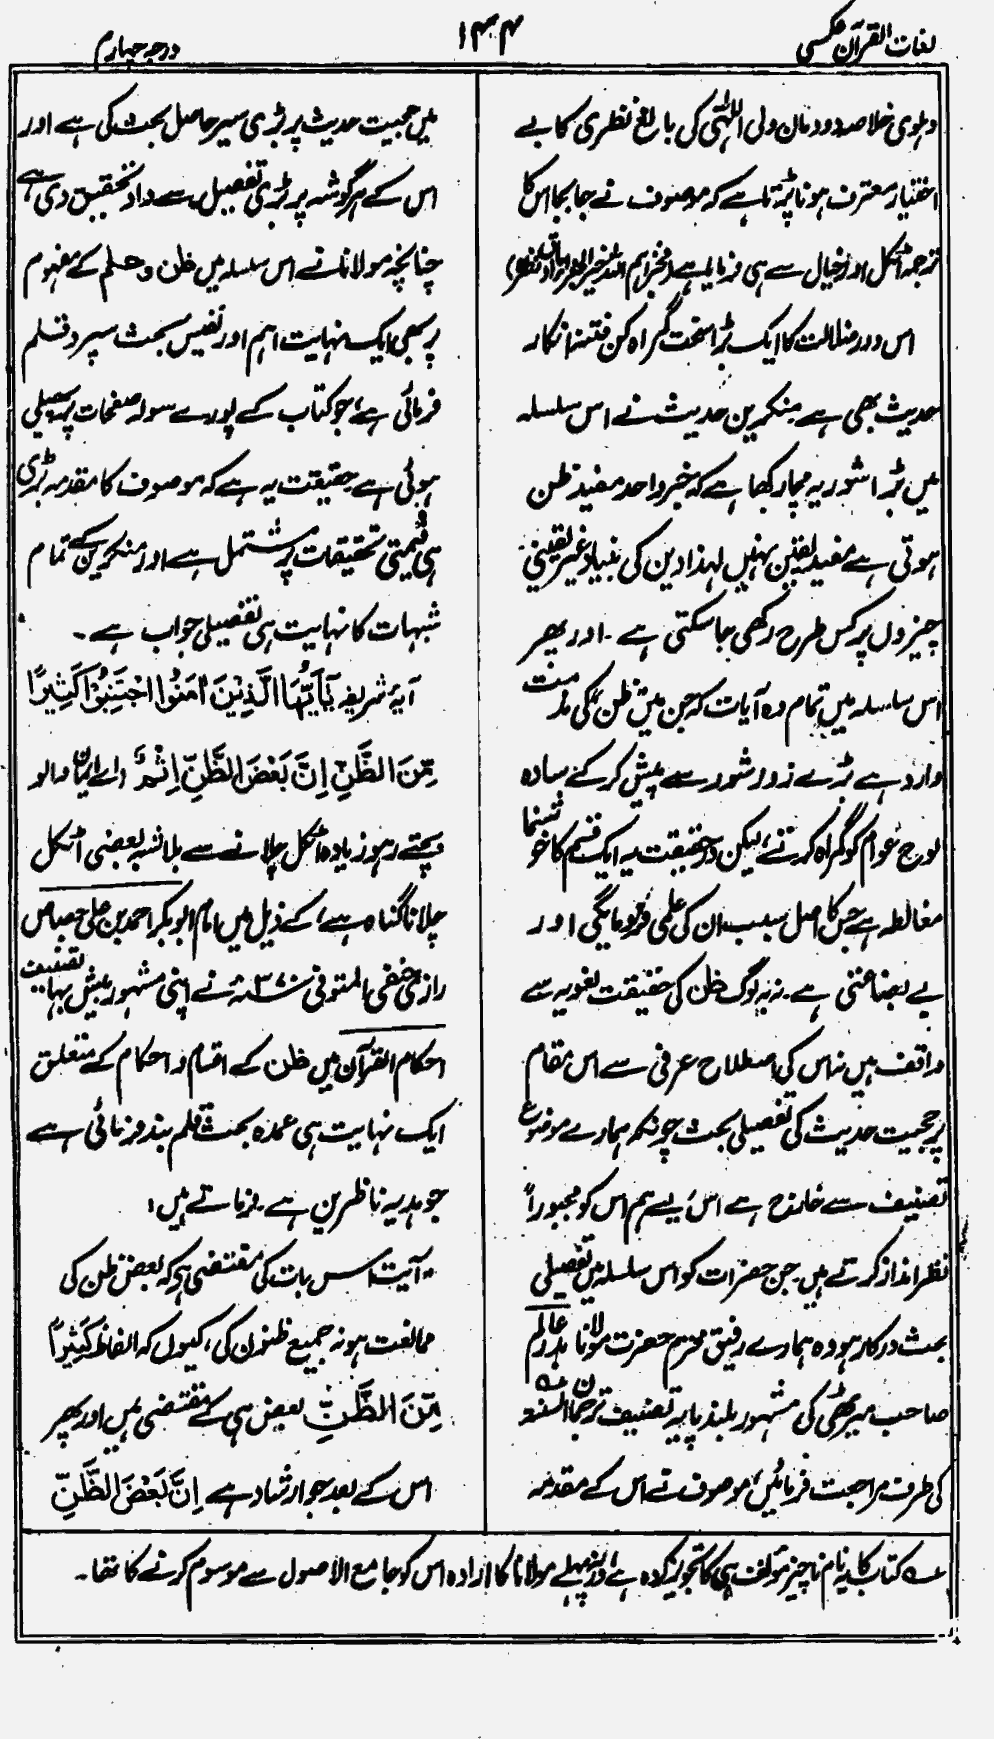 لغات القرآن عکسی
۱۴۴
درجہ چہارم
دہلوی خلاصہ دودمان ولی اللٰہی کی بالغ نظری کا بے
اختیار معترف ہونا پڑتا ہے کہ موصوف نے جا بجا اس کا
ترجمہ اٹکل اور خیال سے ہی فرمایا ہے
اس دور ضلالت کا ایک بڑا سخت گمراہ کن فتنہ انکار
حدیث بھی ہے منکرین حدیث نے اس سلسلہ
میں بڑا شور یہ مچا رکھا ہے کہ خبر واحد مفید ظن
ہوتی ہے مفید یقین نہیں لہذا دین کی بنیاد غیر یقینی
چیزوں پر کس طرح رکھی جا سکتی ہے ۔ اور پھر
اس سلسلہ میں تمام وہ آیات کہ جن میں ظن کی مذمت
وارد ہے بڑے زور شور سے پیش کر کے سادہ
لوح عوام کو گمراہ کرتے، لیکن در حقیقت یہ ایک قسم کا خوشنما
مغالطہ ہے جس کا اصل سبب ان کی علمی فرومایگی اور
بے بضاعتی ہے ۔ نہ یہ لوگ ظن کی حقیقت لغویہ سے
واقف ہیں نہ اس کی اصطلاح عرفی سے اس مقام
پر حجیت حدیث کی تفصیلی بحث چونکہ ہمارے موضوع
تصنیف سے خارج ہے اس لیے ہم اس کو مجبوراً
نظر انداز کرتے ہیں جن حضرات کو اس سلسلہ میں تفصیلی
بحث درکار ہو وہ ہمارے رفیق محترم حضرت مولانا بدر عالم
صاحب میرٹھی کی مشہور بلند پایہ تصنیف ترجمان السنۃ ؎
کی طرف مراجعت فرمائیں، موصوف نے اس کے مقدمہ
میں حجیت حدیث پر بڑی سیر حاصل بحث کی ہے اور
اس کے ہر گوشہ پر بڑی تفصیل سے داد تحقیق دی ہے
چنانچہ مولانا نے اس سلسلہ میں ظن و علم کے مفہوم
پر بھی ایک نہایت اہم اور نفیس بحث سپرد قلم
فرمائی ہے، جو کتاب کے پورے سولہ صفحات پر پھیلی
ہوئی ہے حقیقت یہ ہے کہ موصوف کا مقدمہ بڑی
ہی قیمتی تحقیقات پر مشتمل ہے اور منکرین کے تمام
شبہات کا نہایت ہی تفصیلی جواب ہے ۔
آیۂ شریفہ يٰٓاَيُّهَا الَّذِيْنَ اٰمَنُوا اجْتَنِبُوْا كَثِيْرًا
مِّنَ الظَّنِّ اِنَّ بَعْضَ الظَّنِّ اِثْمٌ (اے ایمان والو
بچتے رہو زیادہ اٹکل چلانے سے بلاشبہ بعضی اٹکل
چلانا گناہ ہے) کے ذیل میں امام ابوبکر احمد بن علی جصاص
رازی حنفی المتوفی ۳۷۰ھ نے اپنی مشہور بیش بہا تصنیف
احکام القرآن میں ظن کے اقسام و احکام کے متعلق
ایک نہایت ہی عمدہ بحث قلم بند فرمائی ہے
جو ہدیہ ناظرین ہے۔ فرماتے ہیں:
"آیت اس بات کی مقتضی ہے کہ بعض ظن کی
ممانعت ہو نہ جمیع ظنون کی، کیوں کہ الفاظ كَثِيْرًا
مِّنَ الظَّنِّ بعض ہی کے مقتضی ہیں اور پھر
اس کے بعد جو ارشاد ہے اِنَّ بَعْضَ الظَّنِّ
؎ کتاب کا یہ نام ناچیز مؤلف ہی کا تجویز کردہ ہے ورنہ پہلے مولانا کا ارادہ اس کو جامع الاصول سے موسوم کرنے کا تھا ۔